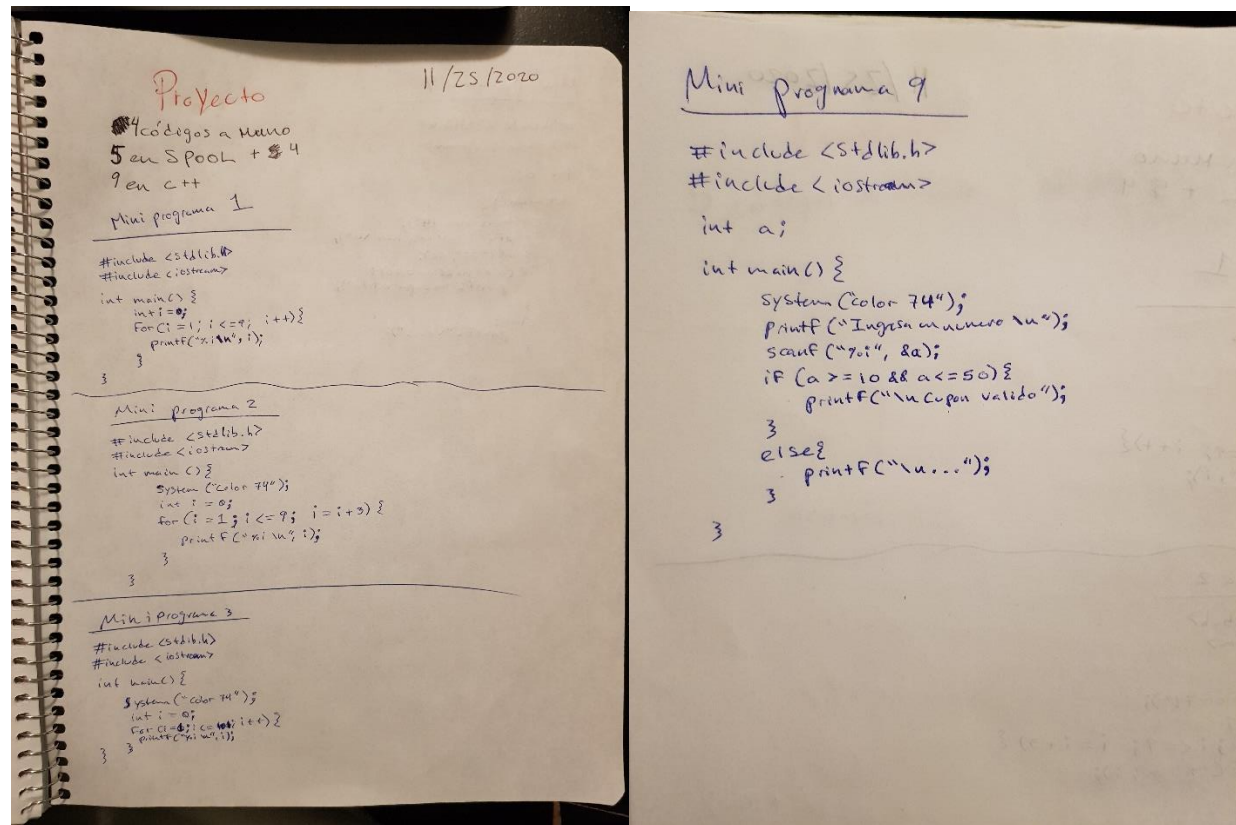 Proyecto
11/25/2020
4 códigos a Mano
5 en SPOOL + 4
9 en c++
Mini programa 1
#include <stdlib.h>
#include <iostream>
int main() {
int i = 0;
for(i = 1; i <= 9; i++){
printf("%i\n", i);
}
}
Mini programa 2
#include <stdlib.h>
#include <iostream>
int main () {
system ("color 74");
int i = 0;
for (i = 1; i <= 9; i = i+3) {
printf ("%i \n", i);
}
}
Mini programa 3
#include <stdlib.h>
#include <iostream>
int main() {
System ("color 74");
int i = 0;
for (i = i <= i++) {
printf("%i \n", i);
} }
Mini programa 9
#include <stdlib.h>
#include <iostream>
int a;
int main() {
system ("color 74");
printf ("Ingresa un numero \n");
scanf ("%i", &a);
if (a >= 10 && a <= 50) {
printf("\n Cupon valido");
}
else{
printf ("\n...");
}
}